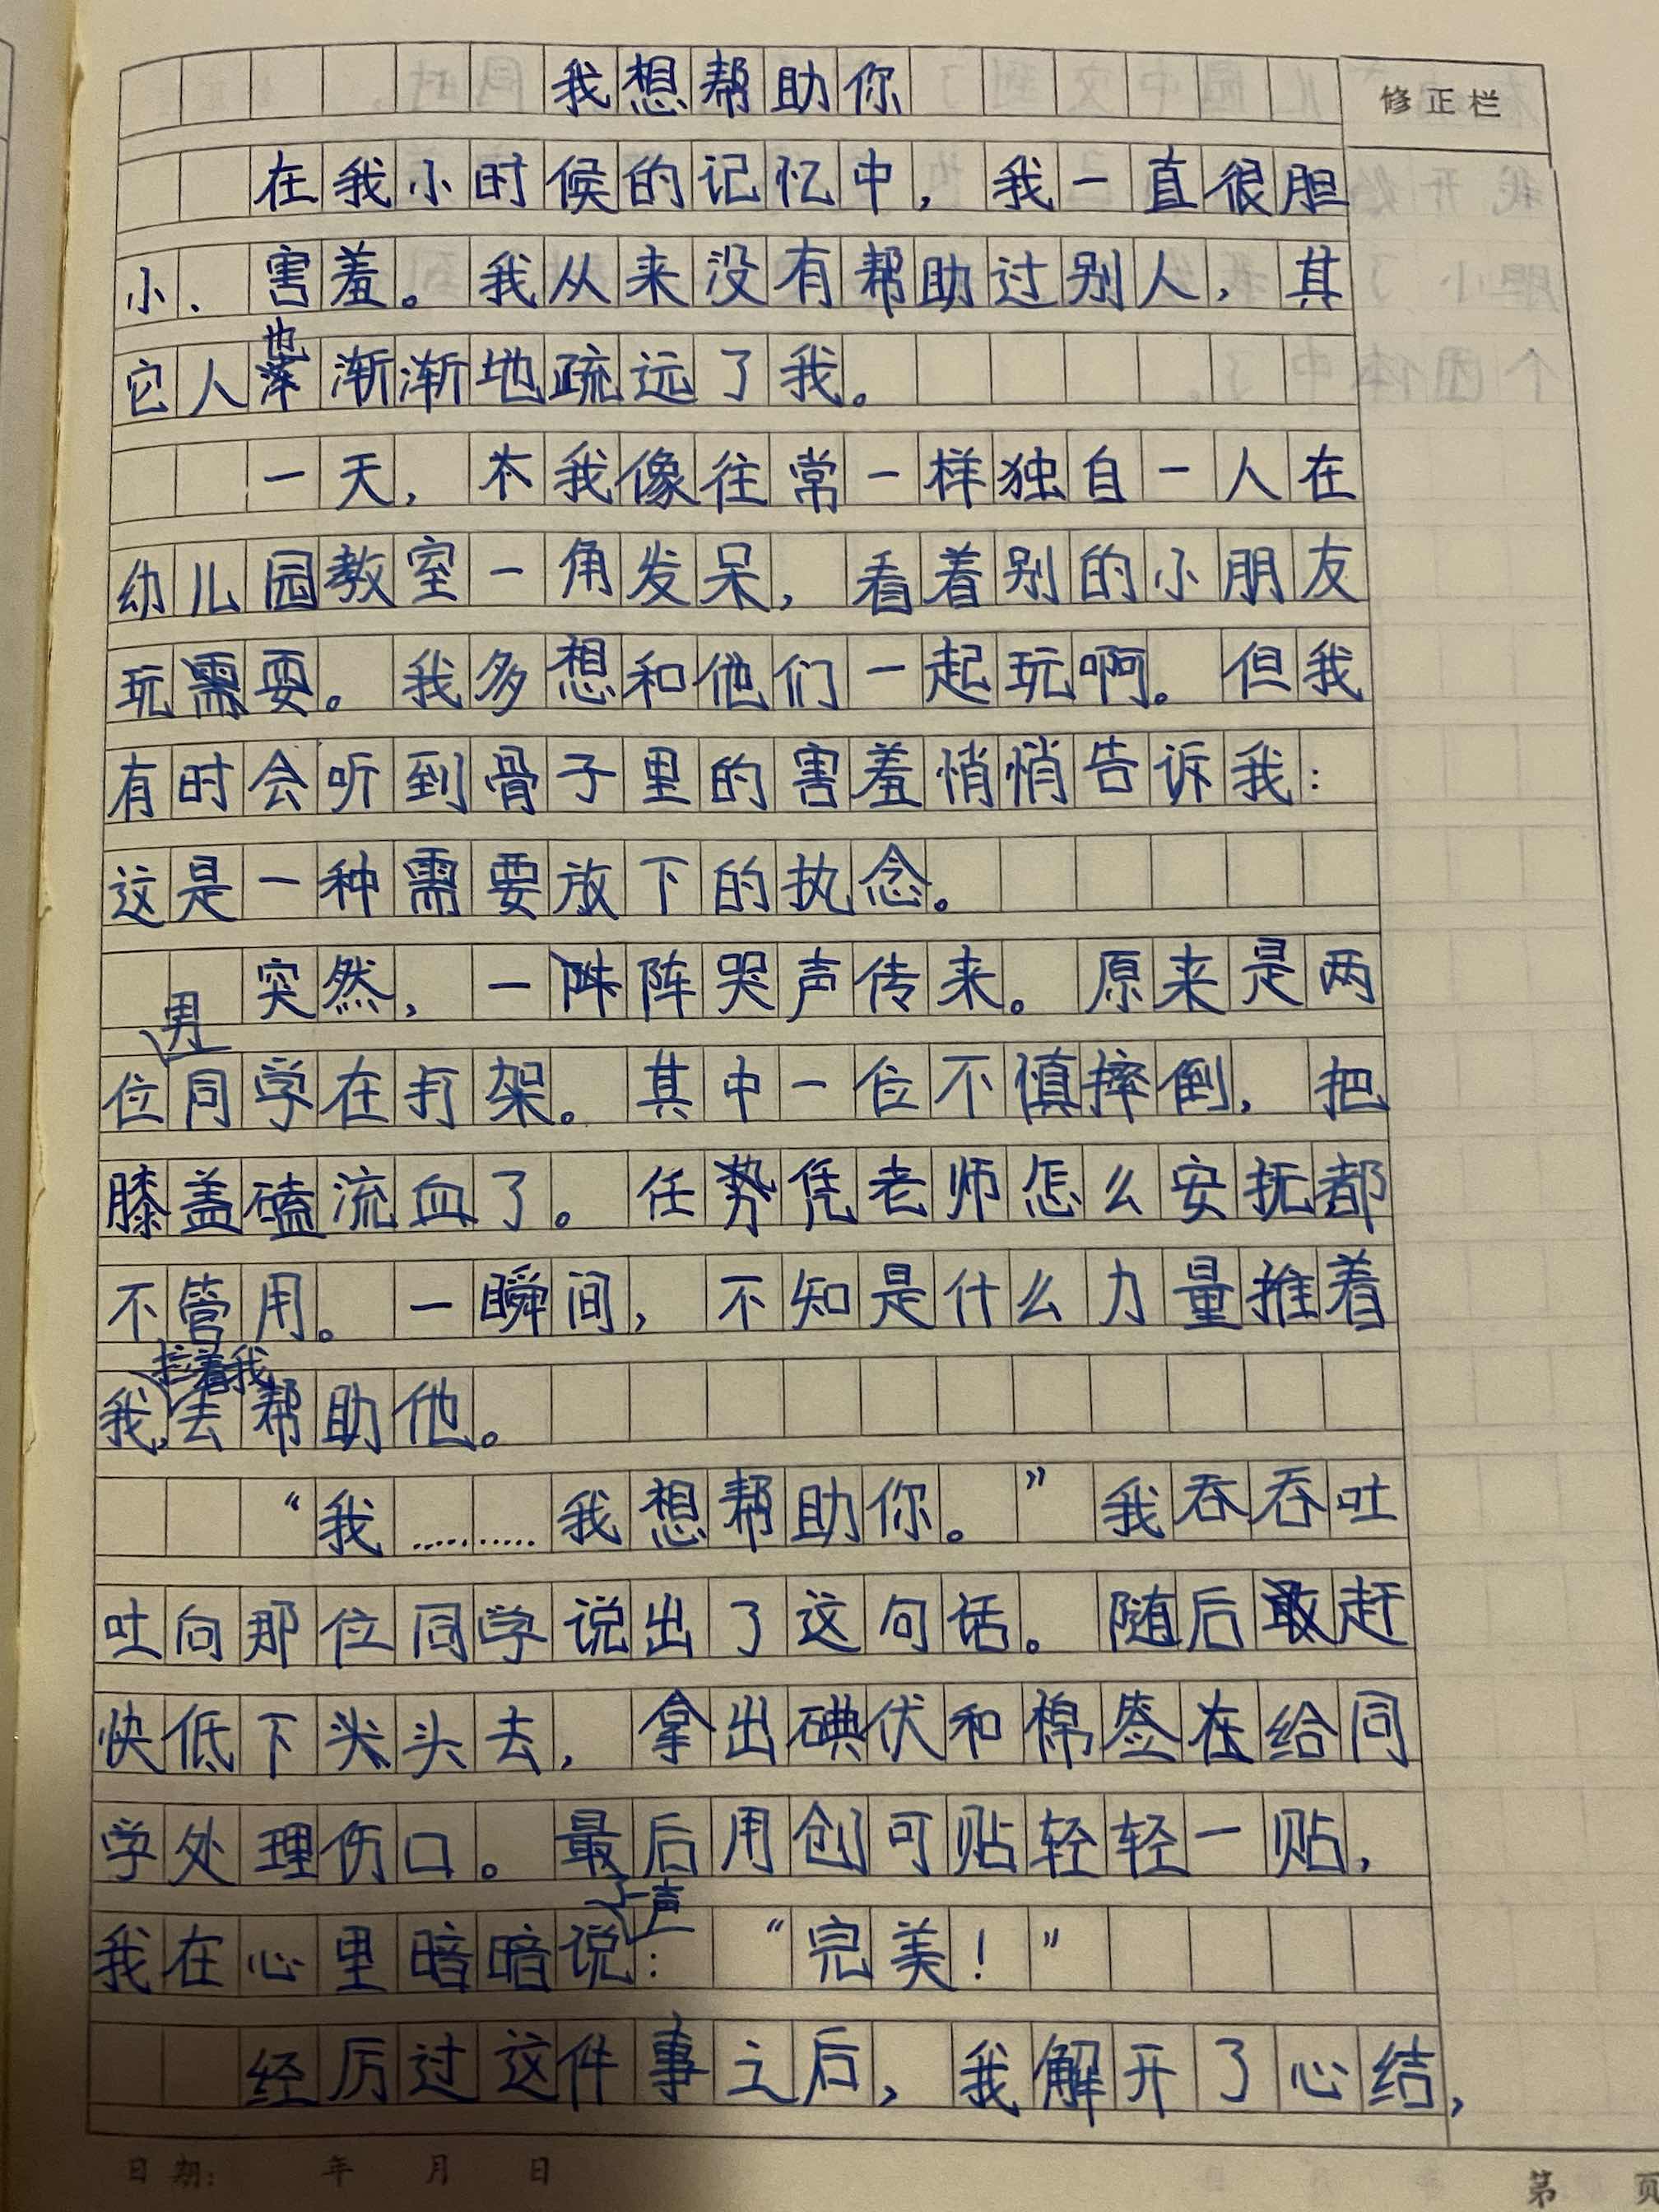 我想帮助你
修正栏
在我小时候的记忆中，我一直很胆
小、害羞。我从来没有帮助过别人，其
它人也渐渐地疏远了我。
一天，我像往常一样独自一人在
幼儿园教室一角发呆，看着别的小朋友
玩耍。我多想和他们一起玩啊。但我
有时会听到骨子里的害羞悄悄告诉我：
这是一种需要放下的执念。
突然，一阵阵哭声传来。原来是两
位男同学在打架。其中一位不慎摔倒，把
膝盖磕流血了。任凭老师怎么安抚都
不管用。一瞬间，不知是什么力量推着
我，拉着我去帮助他。
“我…………我想帮助你。”我吞吞吐
吐向那位同学说出了这句话。随后赶
快低下头去，拿出碘伏和棉签在给同
学处理伤口。最后用创可贴轻轻一贴，
我在心里暗暗说一声：“完美！”
经历过这件事之后，我解开了心结，
日期： 年 月 日
第 页